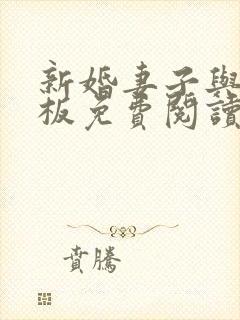 新婚妻子與
板免費閱讀
賁騰